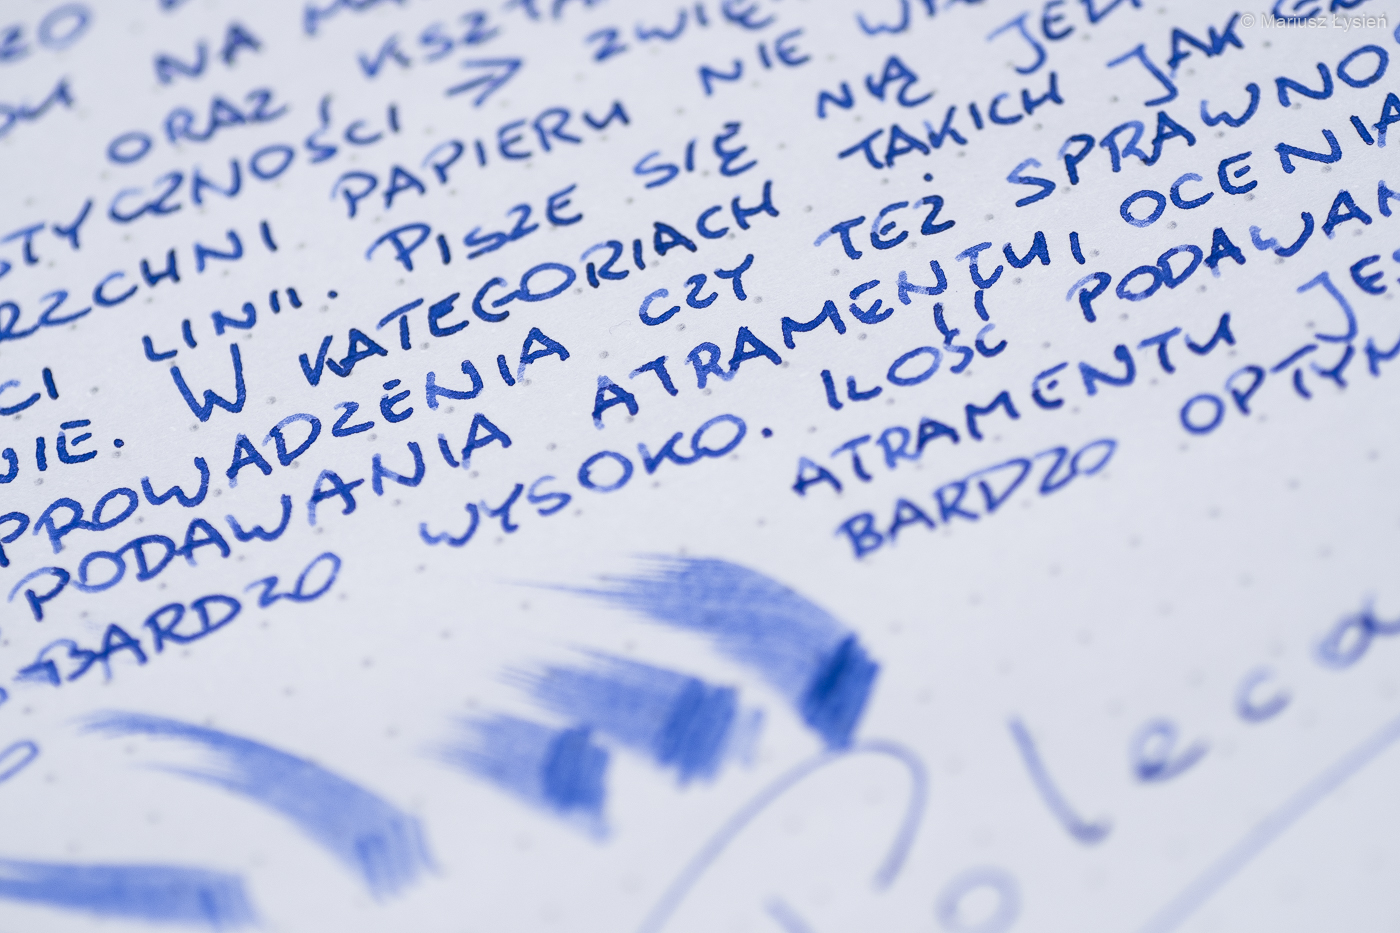 ZO NA
ORAZ KSZTA
STYCZNOŚCI → ZWIĘ
RZCHNI PAPIERU NIE
CI LINII. PISZE SIĘ NIĄ JE
NIE. W KATEGORIACH TAKICH JAK
PROWADZENIA CZY TEŻ SPRAWNO
PODAWANIA ATRAMENTU, OCENIA
BARDZO WYSOKO. ILOŚĆ PODAWAN
ATRAMENTU JES
BARDZO OPTYM
Poleca
© Mariusz Łysień